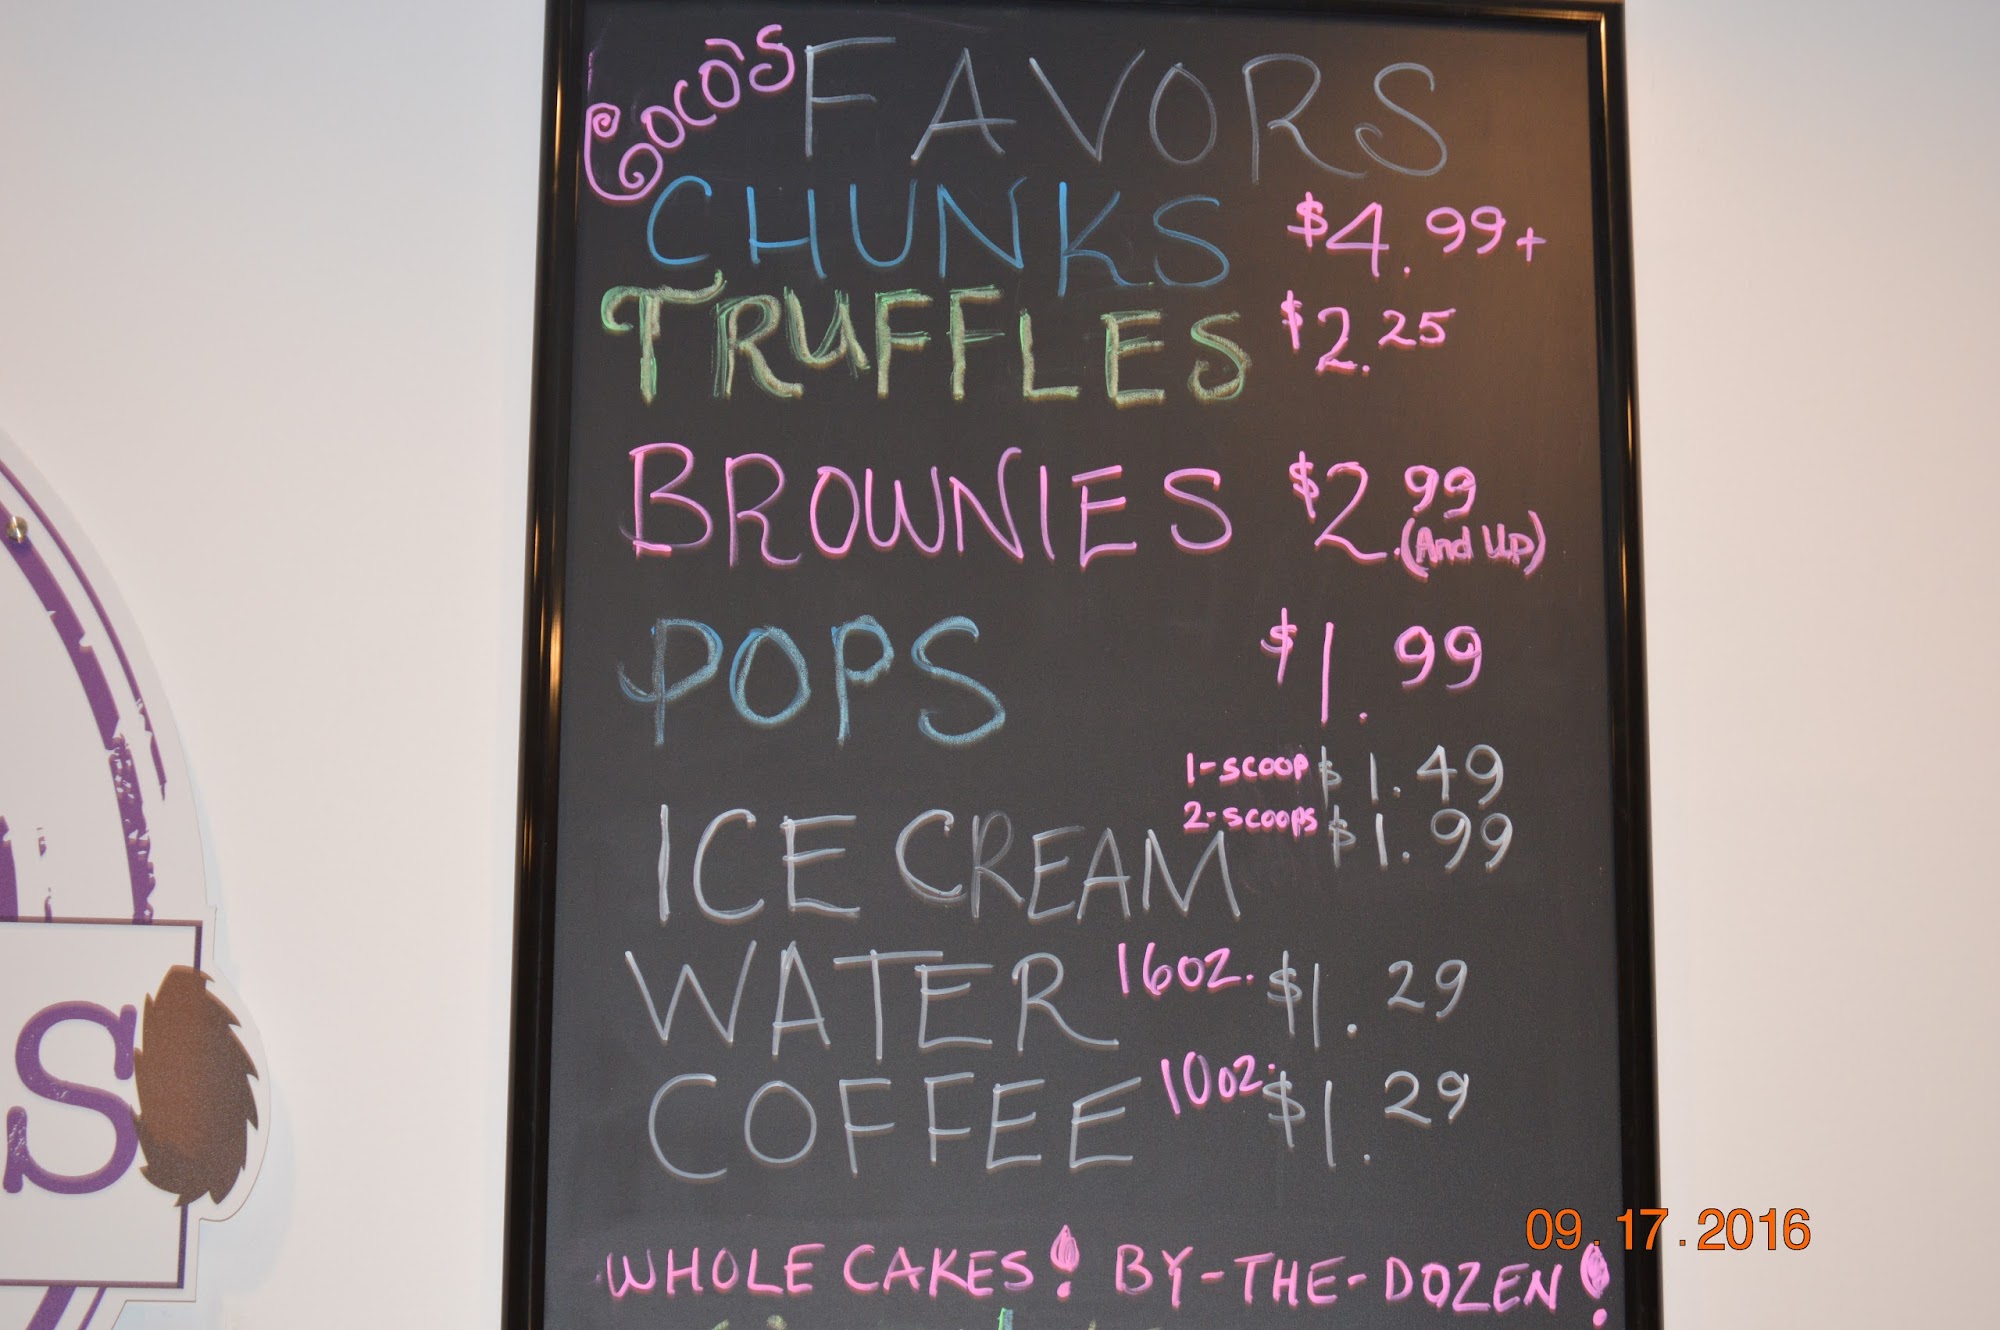 COCO'S FAVORS
CHUNKS $4.99+
TRUFFLES $2.25
BROWNIES $2.99 (And Up)
POPS $1.99
1-SCOOP $1.49
2-SCOOPS $1.99
ICE CREAM
WATER 16OZ. $1.29
COFFEE 10OZ. $1.29
WHOLE CAKES! BY-THE-DOZEN!
S
09.17.2016